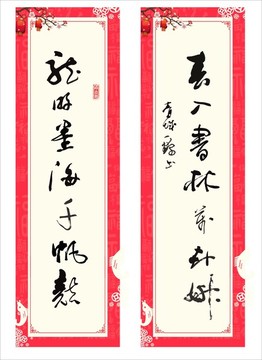 龍游墨海千帆競
春入書林萬卉妍